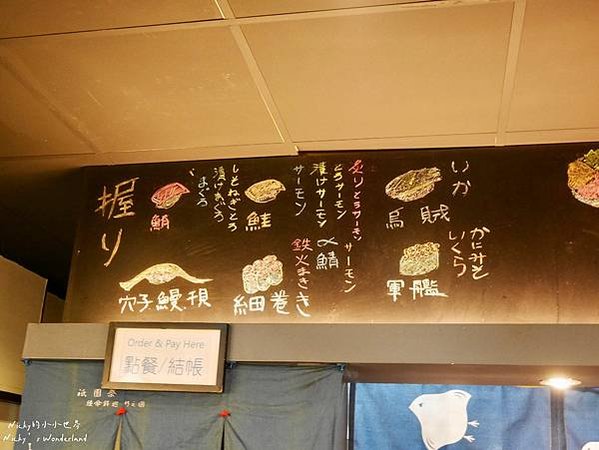 握り
鮪
まぐろ
漬けまぐろ
しそねぎとろ
鮭
サーモン
漬けサーモン
とろサーモン
炙りとろサーモン
いか
烏賊
穴子鰻
細巻き
鉄火まき
〆鯖
サーモン
かにみそ
いくら
軍艦
Order & Pay Here
點餐/結帳
祇園祭
Nicky的小小世界
Nicky's Wonderland